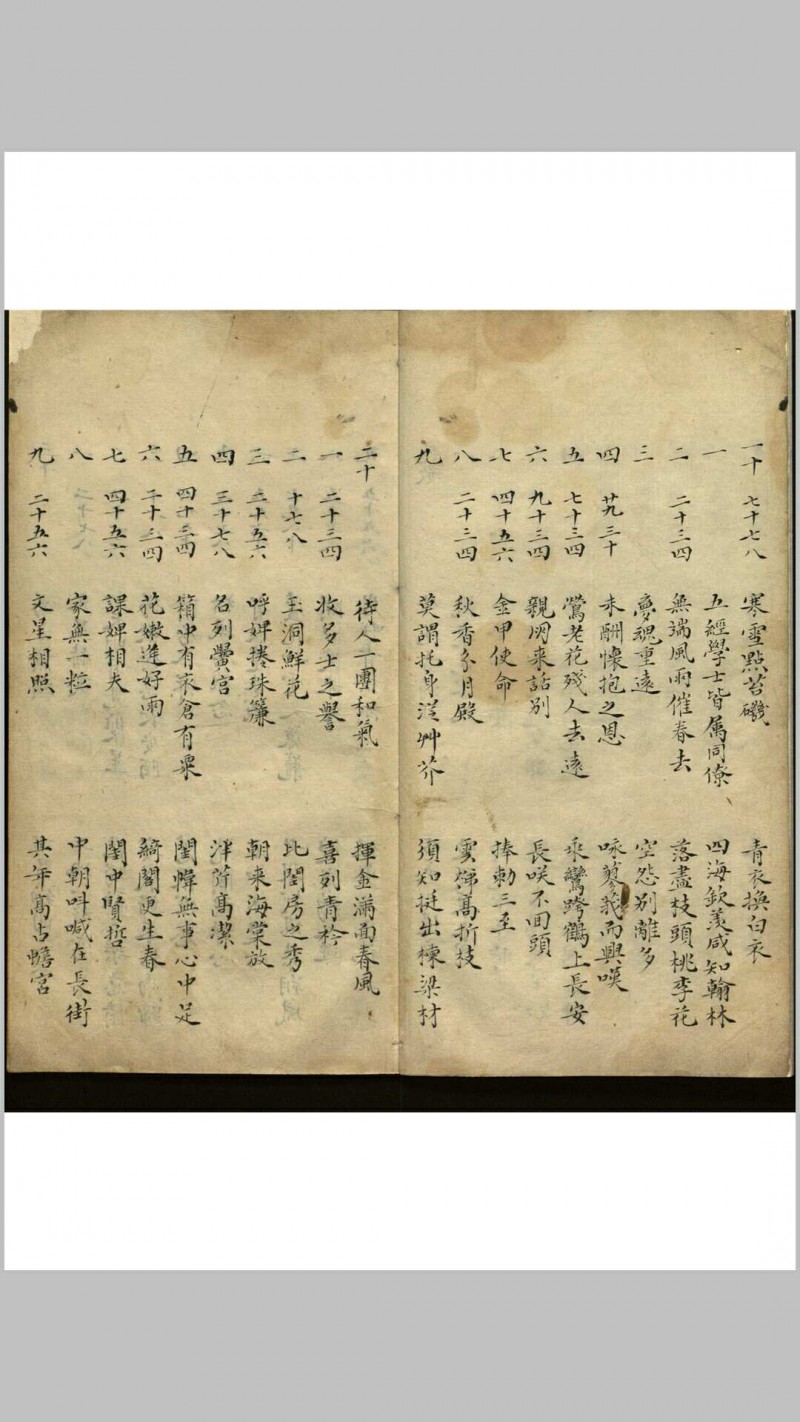 一十 七十七八 寒雪點苔磯 青衣換白衣
一 五經學士皆属同僚 四海欽羡咸知翰林
二 二十三四 無端風雨催春去 落盡枝頭桃李花
三 夢魂重遠 空怨别離多
四 廿九三十 未酬懷抱之恩 咏蓼莪而興嘆
五 七十三四 鶯老花殘人去遠 乘鸞跨鶴上長安
六 九十三四 親朋来話别 長咲不回頭
七 四十五六 金甲使命 捧勅三至
八 二十三四 秋香分月殿 雲梯髙折枝
九 莫謂托身従艸芥 須知挺出棟梁材
二十 待人一團和氣 揮金滿面春風
一 二十三四 收多士之譽 喜列青衿
二 十七八 玉洞鮮花 比閨房之秀
三 二十五六 呼婢捲珠簾 朝来海棠放
四 三十七八 名列黌宮 泮芹髙潔
五 四十三四 箱中有衣倉有粟 閨幃無事心中足
六 二十三四 花嫩進好雨 綺閣更生春
七 四十五六 課婢相夫 閨中賢哲
八 家無一粒 中朝呌喊在長街
九 二十五六 文星相照 其年髙占蟾宮